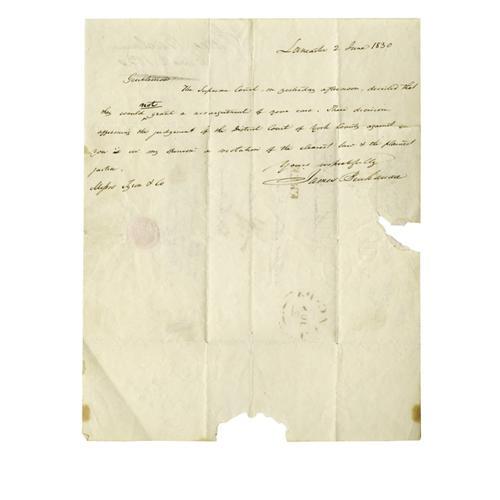 Lancaster 2 June 1830
Gentlemen
The Supreme Court, on yesterday afternoon, decided that
they would not grant a rearrangement of your case. Their decision
affirming the judgement of the District Court of York County against
you is in my opinion a violation of the clearest law & the plainest
justice.
Yours respectfully
Messrs Tyson & Co
James Buchanan